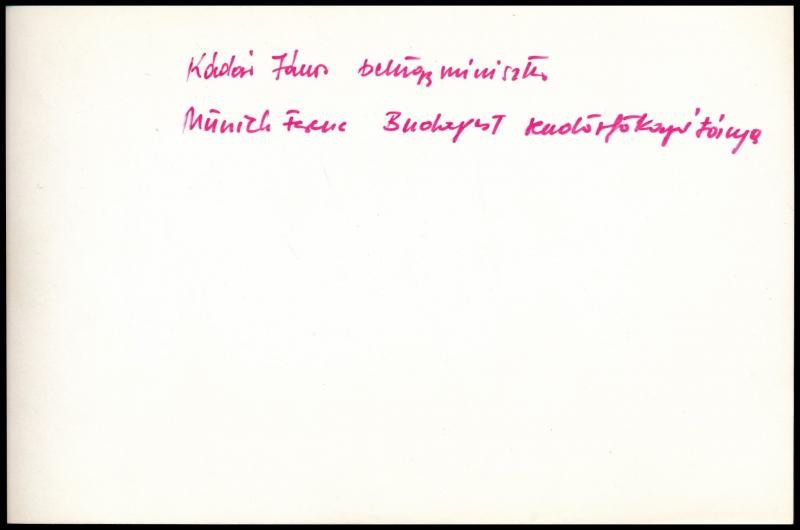 Kádár János belügyminiszter
Münnich Ferenc Budapest rendőrfőkapitánya